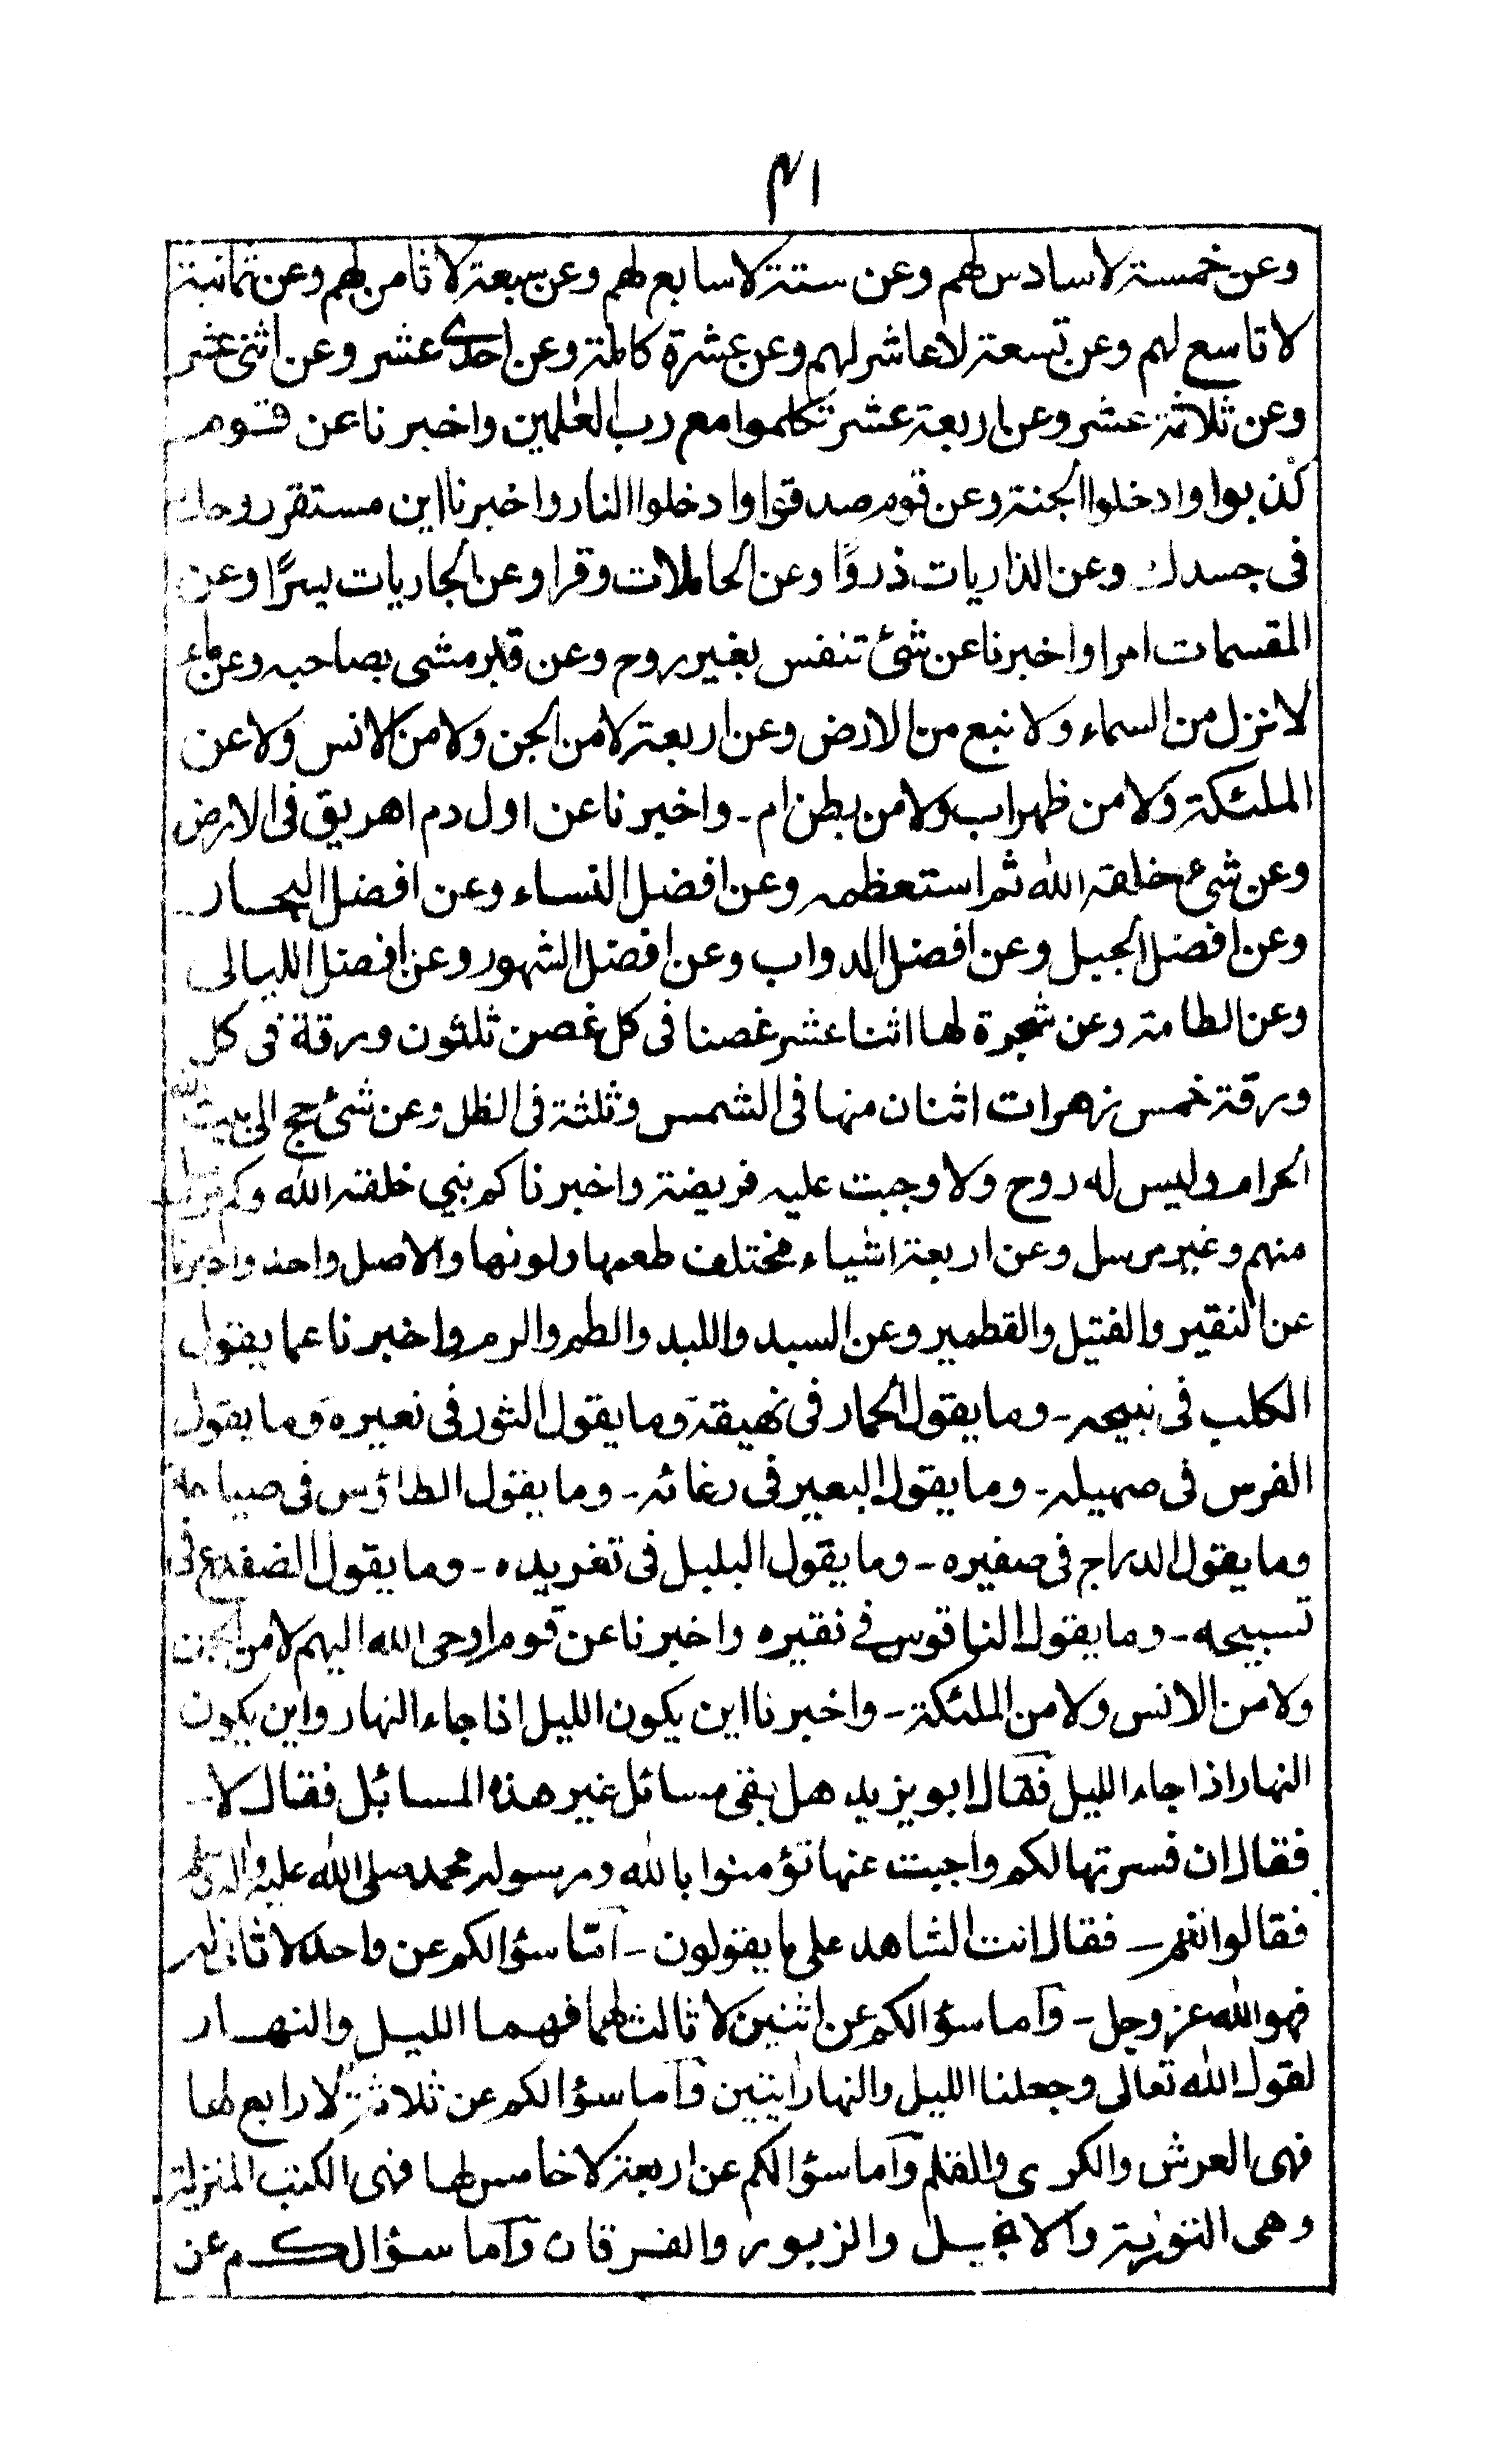 ١٤
وعن خمسة لا سادس لهم وعن ستة لا سابع لهم وعن سبعة لا ثامن لهم وعن ثمانية
لا تاسع لهم وعن تسعة لا عاشر لهم وعن عشرة كاملة وعن احدى عشر وعن اثنى عشر
وعن ثلاثة عشر وعن اربعة عشر تكلموا مع رب العٰلمين واخبرنا عن قوم
كذبوا وادخلوا الجنة وعن قوم صدقوا وادخلوا النار واخبرنا اين مستقر روحك
فى جسدك وعن الذاريات ذروًا وعن الحاملات وقرا وعن الجاريات يسرًا وعن
المقسمات امرا واخبرنا عن شئ تنفس بغير روح وعن قبر مشى بصاحبه وعن ماء
لا نزل من السماء ولا نبع من الارض وعن اربعة لا من الجن ولا من الانس ولا عن
الملئكة ولا من ظهر اب ولا من بطن ام - واخبرنا عن اول دم اهريق فى الارض
وعن شئ خلقه الله ثم استعظمه وعن افضل النساء وعن افضل البحار
وعن افضل الجبل وعن افضل الدواب وعن افضل الشهور وعن افضل الليالى
وعن الطامة وعن شجرة لها اثنا عشر غصنا فى كل غصن ثلثون ورقة فى كل
ورقة خمس زهرات اثنان منها فى الشمس وثلثة فى الظل وعن شئ حج الى بيت الله
الحرام وليس له روح ولا وجبت عليه فريضة واخبرنا كم نبي خلقه الله وكم مرسل
منهم وغير مرسل وعن اربعة اشياء مختلف طعمها ولونها والاصل واحد واخبرنا
عن النقير والفتيل والقطمير وعن السبد واللبد والطم والرم واخبرنا عما يقول
الكلب فى نبيحه - وما يقول الحمار فى نهيقة وما يقول الثور فى نعيره وما يقول
الفرس فى صهيله - وما يقول البعير فى رغائه - وما يقول الطاؤس فى صياحه
وما يقول الدراج فى صفيره - وما يقول البلبل فى تغريده - وما يقول الضفدع فى
تسبيحه - وما يقول الناقوس في نقيره واخبرنا عن قوم اوحى الله اليهم لا من الجن
ولا من الانس ولا من الملئكة - واخبرنا اين يكون الليل اذا جاء النهار واين يكون
النهار اذا جاء الليل فقال ابو يزيد هل بقى مسائل غير هذه المسائل فقال لا -
فقال ان فسرتها لكم واجبت عنها تؤمنوا بالله ورسوله محمد صلى الله عليه واله وسلم
فقالوا نعم - فقال انت الشاهد على ما يقولون - امّا سؤالكم عن واحد لا ثانى له
فهو الله عز وجل - وأما سؤالكم عن اثنين لا ثالث لهما فهما الليل والنهار
لقول الله تعالى وجعلنا الليل والنهار اٰيتين وأما سؤالكم عن ثلاثة لا رابع لها
فهى العرش والكرى والقلم وأما سؤالكم عن اربعة لا خامس لها فهى الكتب المنزلة
وهى التورٰية والانجيل والزبور والفرقان وأما سؤالكم عن